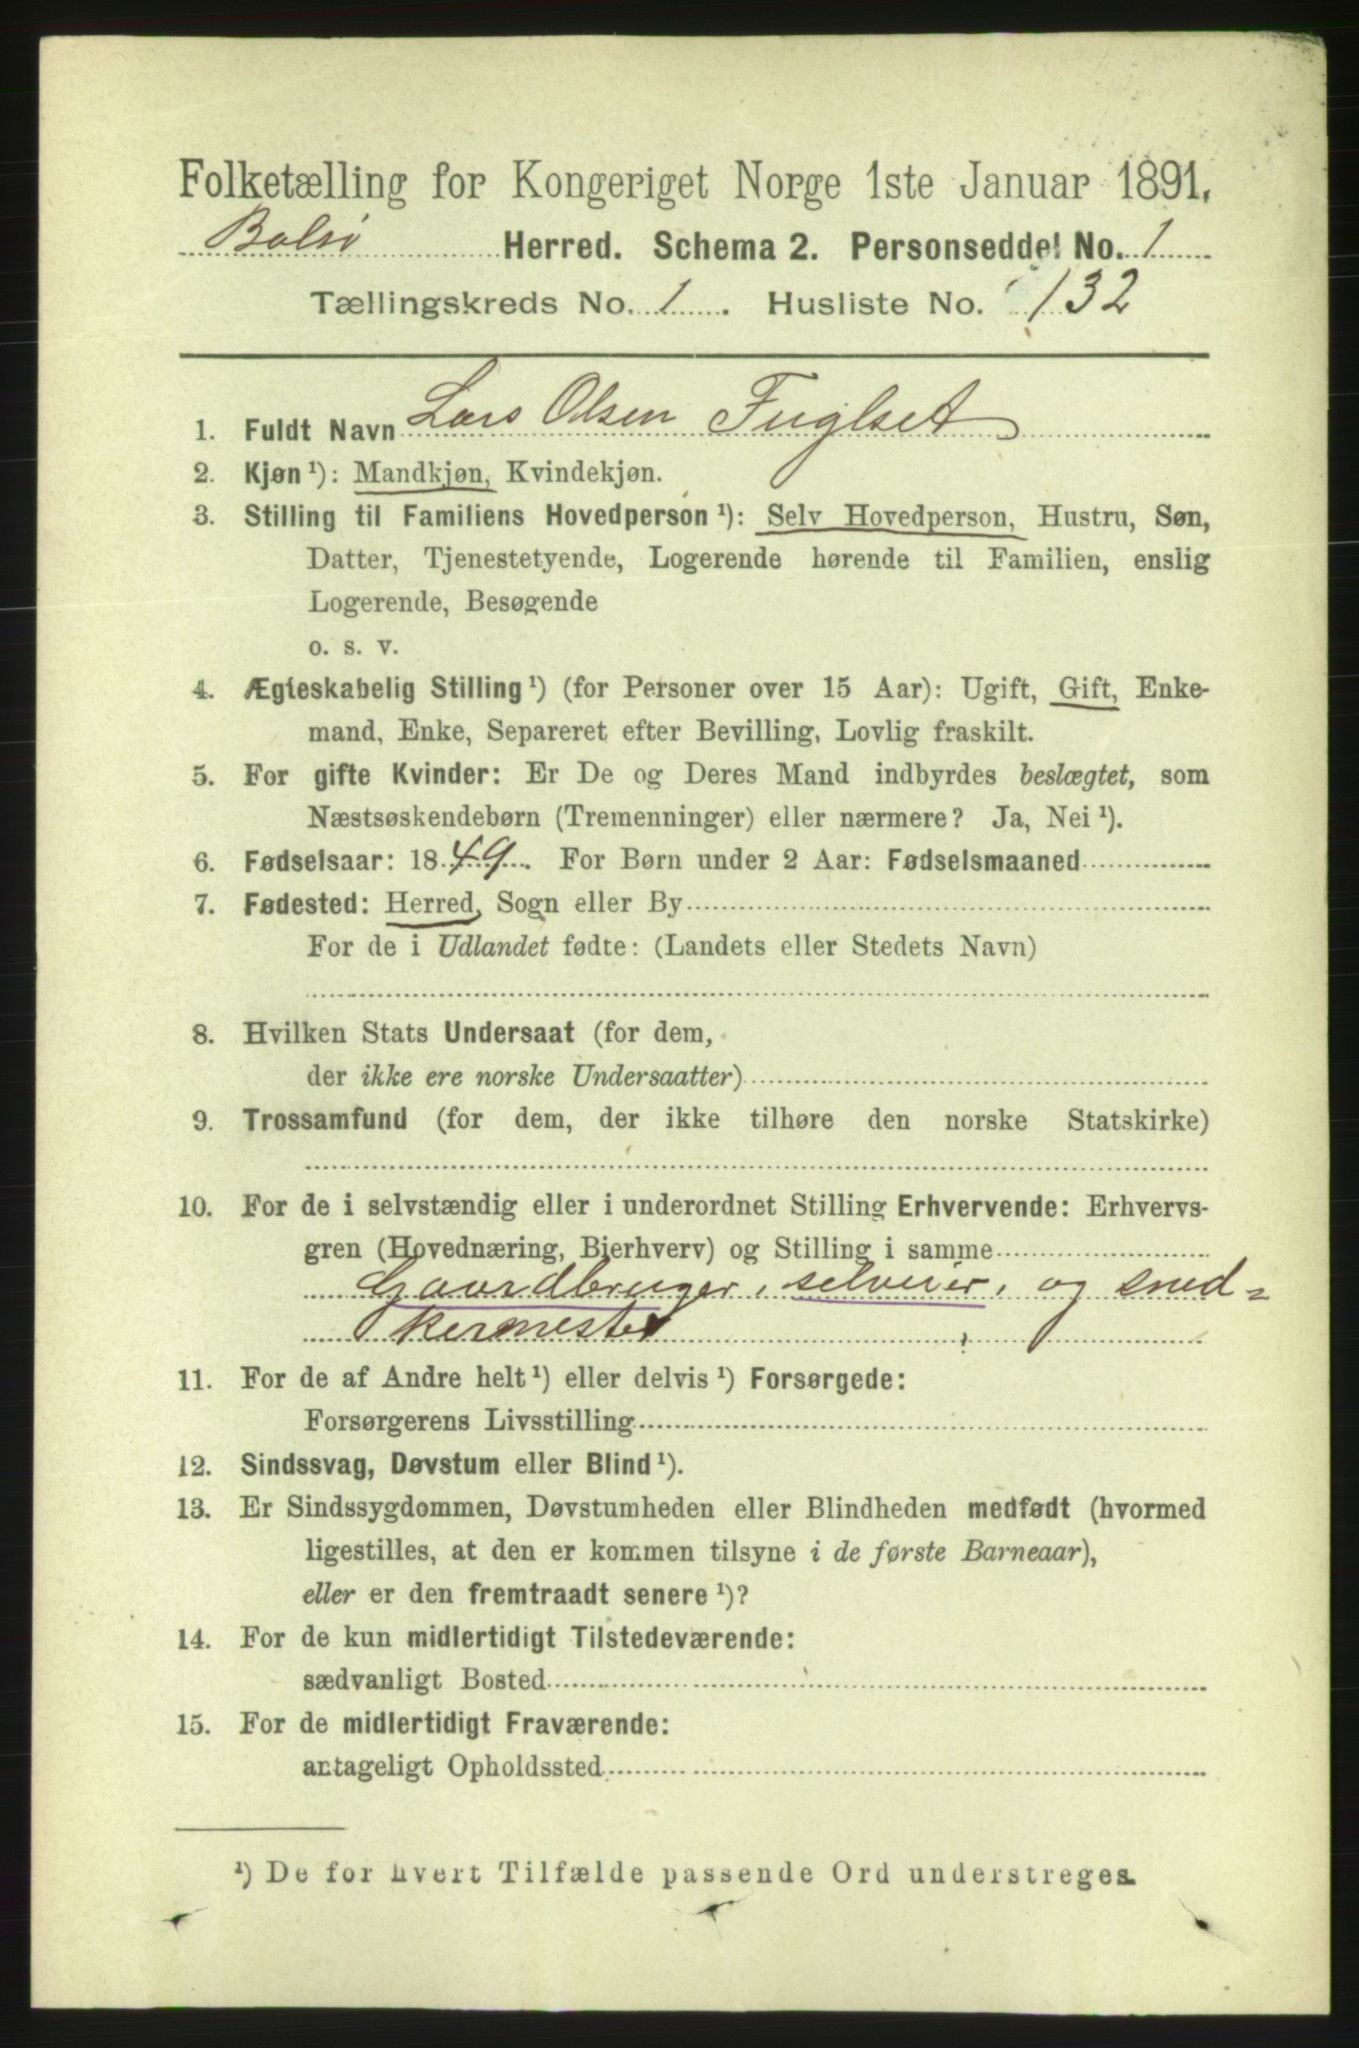 Folketælling for Kongeriget Norge 1ste Januar 1891.
Bolsø Herred. Schema 2. Personseddel No. 1
Tællingskreds No. 1. Husliste No. 132
1. Fuldt Navn Lars Olsen Fuglset
2. Kjøn¹): Mandkjøn, Kvindekjøn.
3. Stilling til Familiens Hovedperson¹): Selv Hovedperson, Hustru, Søn,
Datter, Tjenestetyende, Logerende hørende til Familien, enslig
Logerende, Besøgende
o. s. v.
4. Ægteskabelig Stilling¹) (for Personer over 15 Aar): Ugift, Gift, Enke-
mand, Enke, Separeret efter Bevilling, Lovlig fraskilt.
5. For gifte Kvinder: Er De og Deres Mand indbyrdes beslægtet, som
Næstsøskendebørn (Tremenninger) eller nærmere? Ja, Nei¹).
6. Fødselsaar: 1849. For Børn under 2 Aar: Fødselsmaaned
7. Fødested: Herred, Sogn eller By
For de i Udlandet fødte: (Landets eller Stedets Navn)
8. Hvilken Stats Undersaat (for dem,
der ikke ere norske Undersaatter)
9. Trossamfund (for dem, der ikke tilhøre den norske Statskirke)
10. For de i selvstændig eller i underordnet Stilling Erhvervende: Erhvervs-
gren (Hovednæring, Bierhverv) og Stilling i samme
Gaardbruger, selveier, og sned=
kermester
11. For de af Andre helt¹) eller delvis¹) Forsørgede:
Forsørgerens Livsstilling
12. Sindssvag, Døvstum eller Blind¹).
13. Er Sindssygdommen, Døvstumheden eller Blindheden medfødt (hvormed
ligestilles, at den er kommen tilsyne i de første Barneaar),
eller er den fremtraadt senere¹)?
14. For de kun midlertidigt Tilstedeværende:
sædvanligt Bosted
15. For de midlertidigt Fraværende:
antageligt Opholdssted
¹) De for hvert Tilfælde passende Ord understreges.